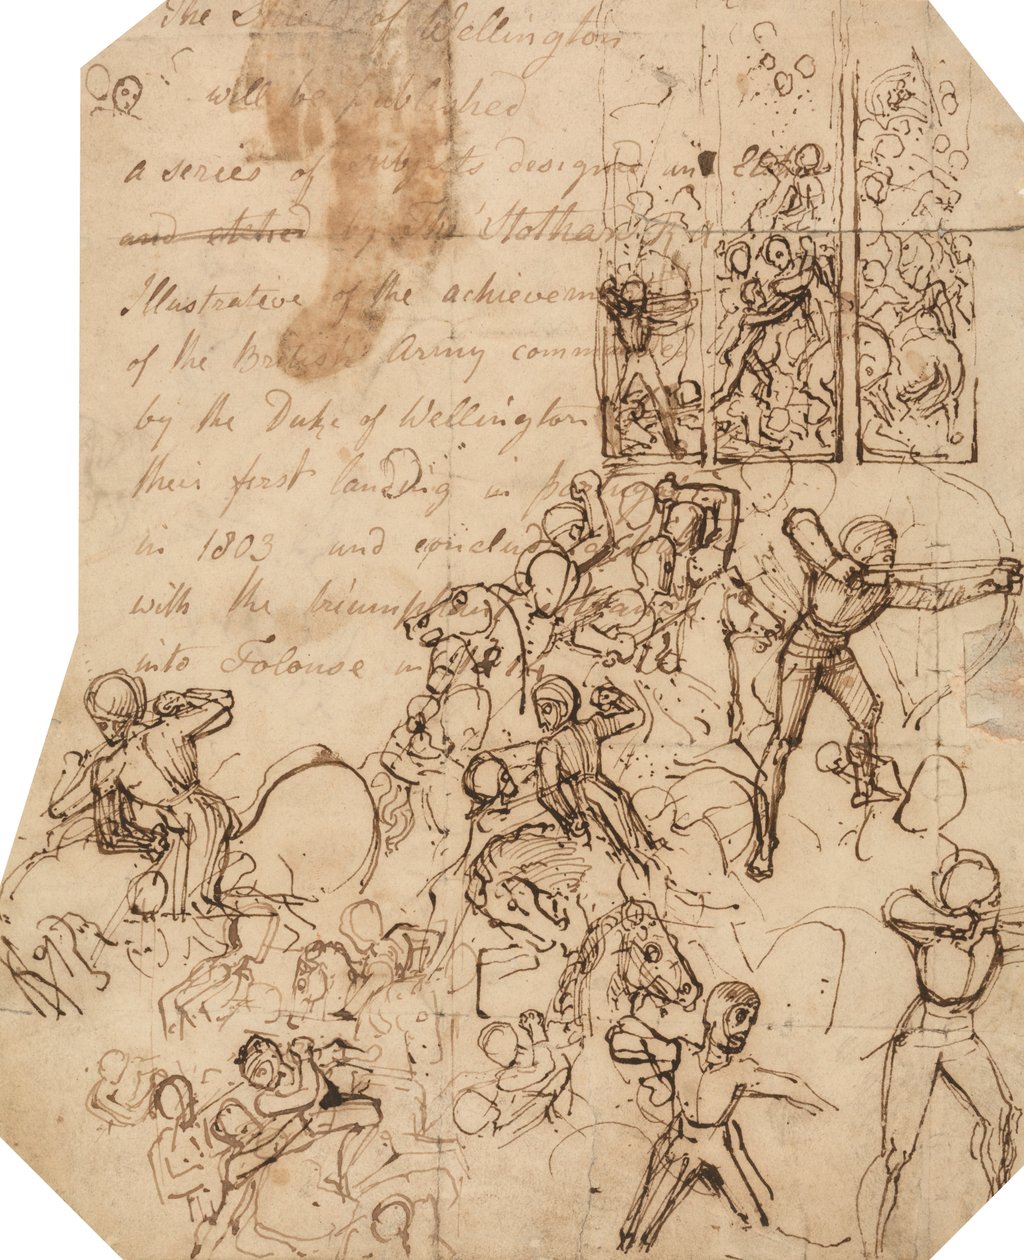 The Shield of Wellington
will be published
a series of subjects designed and
and etched by Tho Stothard RA
Illustrative of the achievem
of the British Army commanded
by the Duke of Wellington
their first landing in portugal
in 1803 and conclud
with the triumphant
into Tolouse in